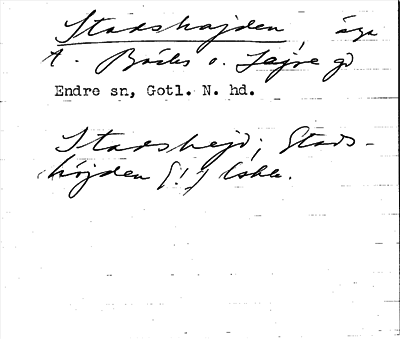 Stadshajden, äga
t. Bäcks o. Lajre gd
Endre sn, Gotl. N. hd.
Stadshejd; Stads-
höjden [!]